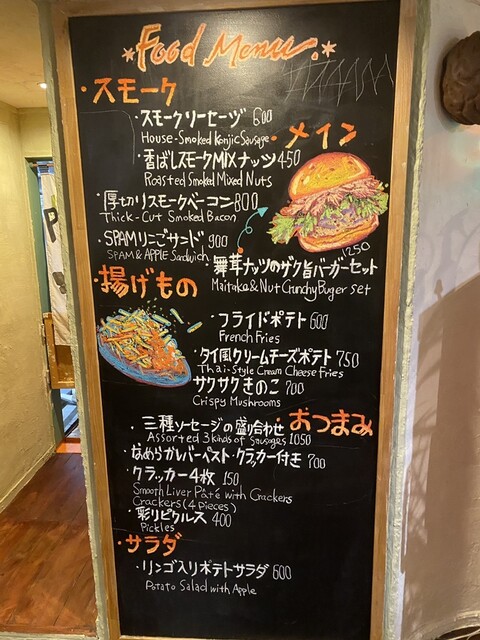 *Food Menu.*
・スモーク
・スモークソーセージ 600
House-Smoked Konjic Sausage
・メイン
・香ばしスモークMIXナッツ 450
Roasted Smoked Mixed Nuts
・厚切りスモークベーコン 800
Thick-Cut Smoked Bacon
・SPAMりんごサンド 900
SPAM & APPLE Sandwich
1250
・舞茸ナッツのザク旨バーガーセット
Maitake & Nut Crunchy Buger set
・揚げもの
・フライドポテト 600
French Fries
・タイ風クリームチーズポテト 750
Thai-Style Cream Cheese Fries
サクサクきのこ 700
Crispy Mushrooms
・おつまみ
・三種ソーセージの盛り合わせ
Assorted 3 kinds of Sausages 1050
・なめらかレバーペースト・クラッカー付き 700
・クラッカー4枚 150
Smooth Liver Pâté with Crackers
Crackers (4 pieces)
・彩りピクルス 400
Pickles
・サラダ
・リンゴ入りポテトサラダ 600
Potato Salad with Apple